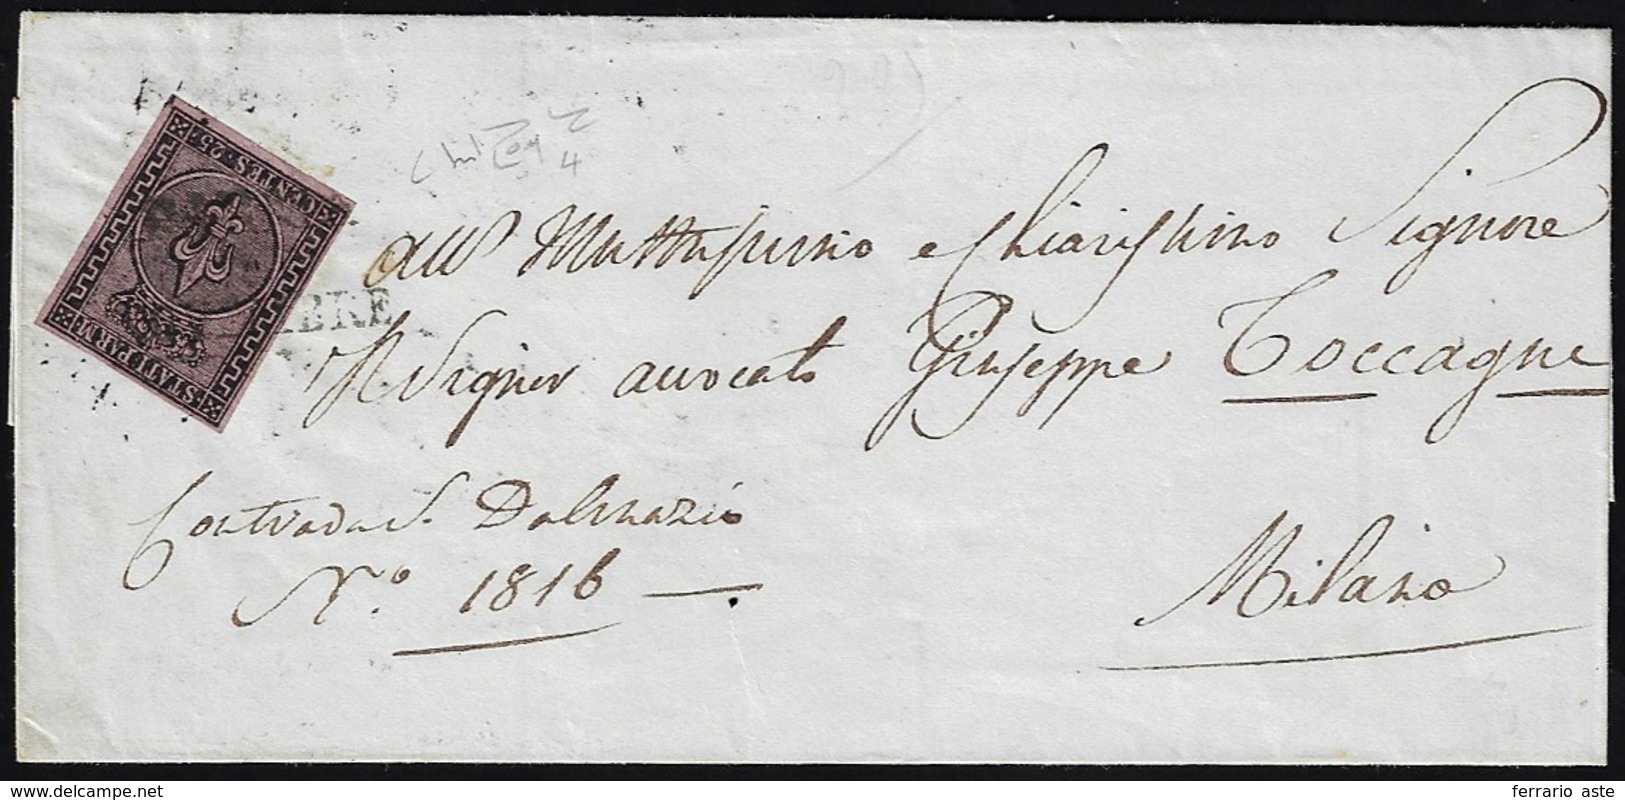 CENTES. 25
STATI PARM.
BRE
All' Illustrissimo e Chiarissimo Signore
Il Signor avvocato Giuseppe Toccagne
Contrada S. Dalmazio
N.º 1816
Milano
www.delcampe.net
ferrario aste